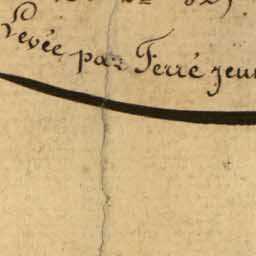 Levée par Ferré jeu